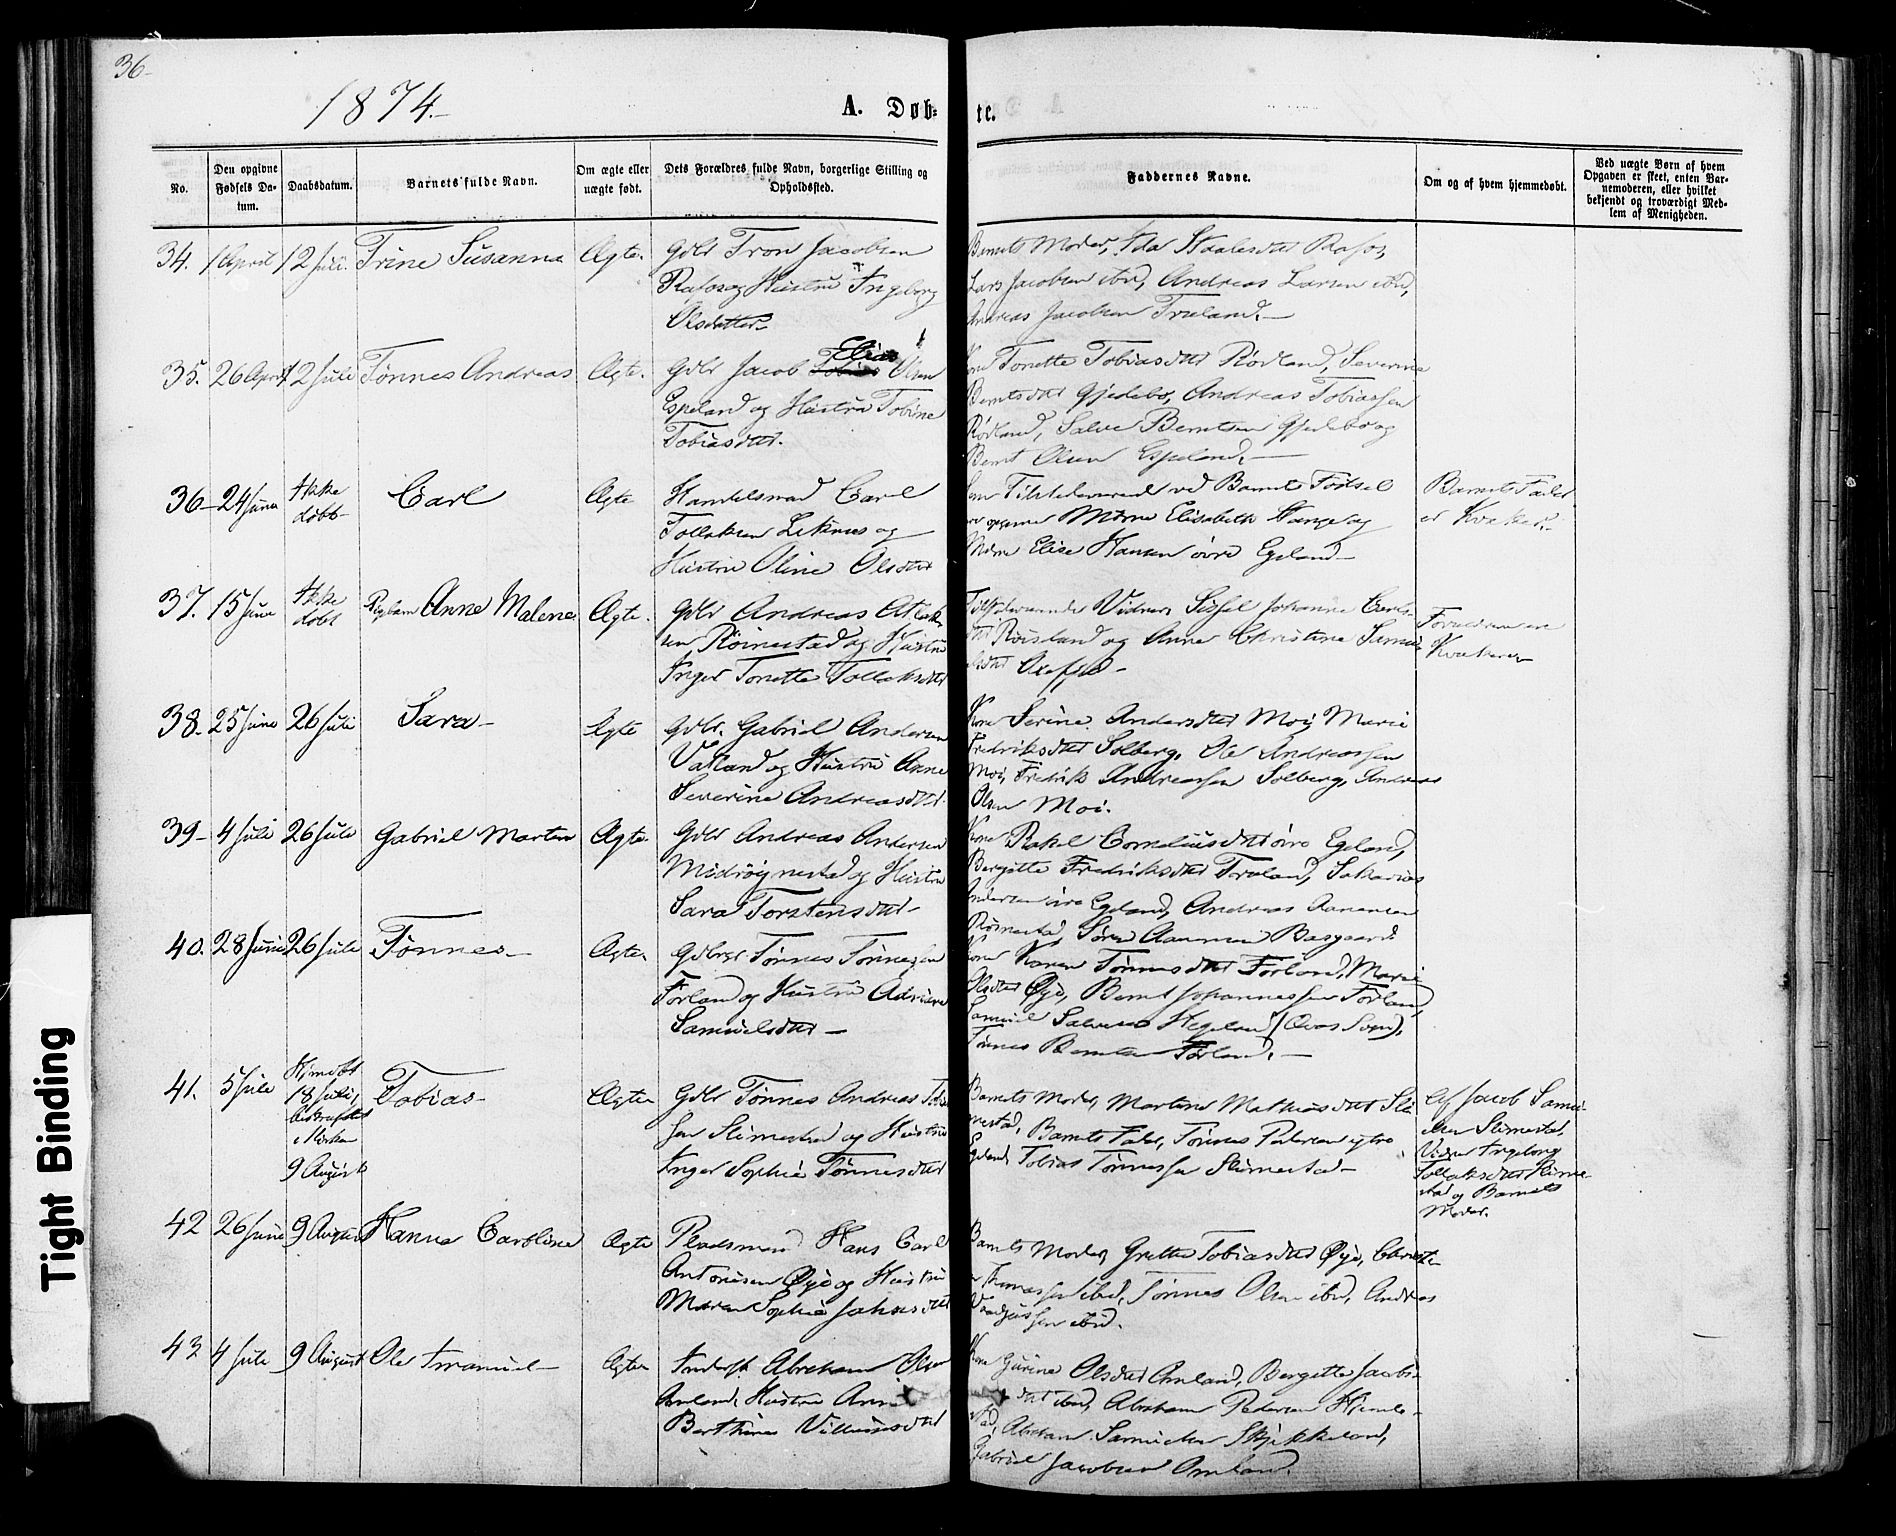 36-
1874.-
A. Døb-
te.
No.
Den opgivne
Fødsels Da-
tum.
Daabsdatum.
Barnets fulde Navn.
Om ægte eller
uægte født.
Dets Forældres fulde Navn, borgerlige Stilling og
Opholdssted.
Faddernes Navne.
Om og af hvem hjemmedøbt.
Ved uægte Børn af hvem
Opgaven er skeet, enten Bar-
nemoderen, eller hvilket
bekjendt og troværdigt Med-
lem af Menigheden.
34. 1 April 12 Juli. Trine Susanne Ægte. Gdbr Tron Jacobsen
Rafos og Hustru Ingeborg
Olsdatter
Barnets Moder, Ida Rafos,
Lars Jacobsen ibid, Andreas Larsen ibid,
Andreas Jacobsen Træland.-
35. 26 April 12 Juli Tønnes Andreas Ægte. Gdbr Jacob Elias Olsen
Espeland og Hustru Tobine
Tobiasdttr.
Kone Tonette Tobiasdttr Rørland, Severine
Berntsdttr Gjedebo, Andreas Tobiassen
Rørland, Salve Berntsen Gjedebo og
Bernt Olsen Espeland.-
36- 24 Juni Ikke
døbt Carl Ægte Handelsmand Carl
Tollaksen Leknes og
Hustru Oline Olsdttr
Som Tilstedeværend ved Barnets Fødsel
Elisabeth Hange og
Elise Hansen øvre Egeland-
Barnets Fader
er Kvæker.-
37. 15 Juni Ikke
døbt Pigebarn Anne Malene Ægte. Gdbr Andreas Atlak-
sen Røinestad og Hustru
Inger Tonette Tollaksdttr
Tilstedeværende Vidner Sissel Johanne Carls-
dttr Roisland og Anne Christine Samu-
elsdttr
Forældrene er
Kvækere
38. 25 Juni 26 Juli Sara- Ægte Gdbr. Gabriel Andersen
Vatland og Hustru Anne
Severine Andreasdttr.
Kone Serine Andersdttr Moi, Marie
Fredriksdttr Solberg, Ole Andreassen
Moi, Fredrik Andreassen Solberg, Andreas
Olsen Moi.
39- 4 Juli 26 Juli Gabriel Martin Ægte. Gdbr Andreas Andersen
og Hustru
Sara Torstensdttr-
Kone Rakel Corneliusdttr øvre Egeland,
Bergitte Fredriksdttr Træland, Sakarias
Andersen øvre Egeland, Andreas Aanensen
Røinestad, Søren Aanensen
40. 28 Juni 26 Juli Tønnes- Ægte. Gdbr Tønnes Tønnessen
Førland og Hustru Adriane
Samuelsdttr-
Kone Karen Tønnesdttr Førland, Marie
Olsdttr Øye, Bernt Johannessen Førland,
Samuel Salvesen (Qvas Sogn),
Tønnes Berntsen Førland.-
41. 5 Juli Hjemdøbt
18 Juli,
i Kirken
9 August Tobias- Ægte Gdbr Tønnes Andreas
Slimestad og Hustru
Inger Sophie Tønnesdttr
Barnets Moder, Martine Mathiasdttr Sli-
mestad, Barnets Fader, Tønnes Pedersen ytre
Egeland, Tobias Tønnessen Slimestad-
Af Jacob Samu-
elsen Slimestad,
Vidner Ingeborg
Tollaksdttr Slime-
stad og Barnets
Moder.
42 26 Juni 9 August Hanne Caroline Ægte Pladsmand Hans Carl
Antonisen Øye og Hustru
Maren Sophie Johnsdttr
Barnets Moder, Grethe Tobiasdttr Øye,
ibid, Tønnes Olsen ibid, Andreas
ibid.
43 4 Juli 9 August Ole Imanuel- Ægte Inderst Abraham Olsen
Amland, Hustru Anne
Berthine Villumsdttr
Kone Gurine Olsdttr Amland, Bergitte Jacobs-
dttr ibid, Abraham Pedersen
Abraham Samuelsen Skjekkeland,
Gabriel Jacobsen Amland.
Tight Binding